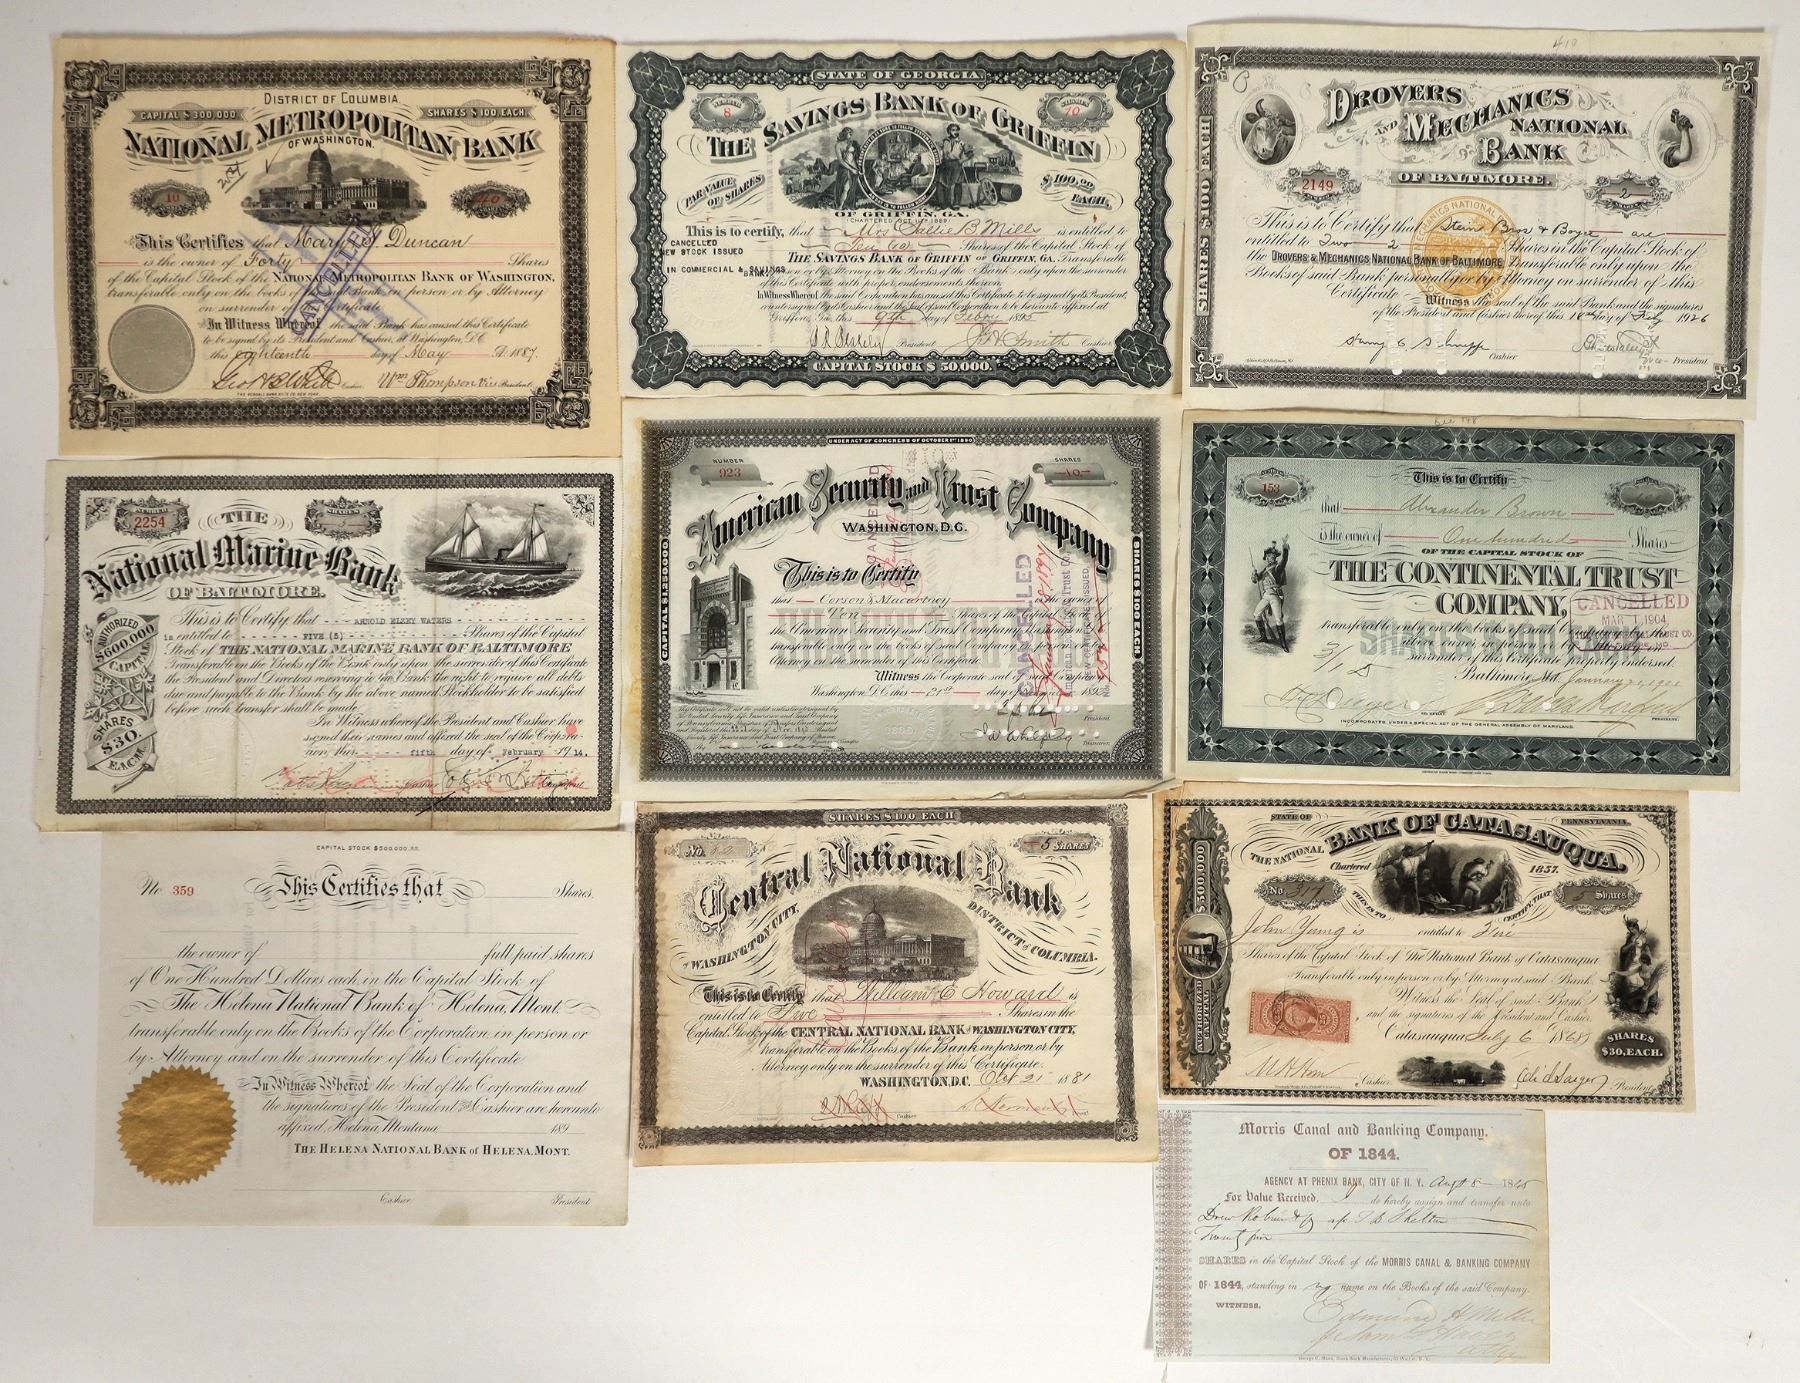 DISTRICT OF COLUMBIA
CAPITAL $300,000
SHARES $100 EACH
NATIONAL METROPOLITAN BANK
OF WASHINGTON.
10
40
CANCELLED
This Certifies that Mary J. Duncan
is the owner of Forty Shares
of the Capital Stock of the NATIONAL METROPOLITAN BANK OF WASHINGTON,
transferable only on the books of the said Bank in person or by Attorney
on surrender of this Certificate
In Witness Whereof the said Bank has caused this Certificate
to be signed by its President and Cashier, at Washington, D.C.
this eighteenth day of May A.D. 1887.
Geo. H. B. White Cashier Wm Thompson Vice President
STATE OF GEORGIA
NUMBER
8
SHARES
10
THE SAVINGS BANK OF GRIFFIN
PAR VALUE OF SHARES
$100.00 EACH,
OF GRIFFIN, GA.
(CHARTERED OCT. 11TH 1889)
This is to certify, that Mrs Sallie B Mills is entitled to
Ten (10) Shares of the Capital Stock of
THE SAVINGS BANK OF GRIFFIN OF GRIFFIN, GA. Transferable
in person or by Attorney on the Books of the Bank only upon the surrender
of this Certificate with proper endorsements thereon.
CANCELLED
NEW STOCK ISSUED
IN COMMERCIAL & SAVINGS
BANK
In Witness Whereof, the said Corporation has caused this Certificate to be signed by its President,
countersigned by its Cashier and the seal of said Corporation to be hereunto affixed at
Griffin, Ga. this 9th day of Feby 1895
President J. H. Smith Cashier
CAPITAL STOCK $50,000.
410
SHARES $100 EACH
DROVERS AND MECHANICS
NATIONAL BANK
OF BALTIMORE.
2149
2
This is to Certify that Stein Bros & Boyce are
entitled to Two 2 Shares in the Capital Stock of
the DROVERS & MECHANICS NATIONAL BANK OF BALTIMORE Transferable only upon the
Books of said Bank personally or by Attorney on surrender of this
Certificate. Witness the seal of said Bank and the signatures
of the President and Cashier thereof this 18th day of Feby 1926
Cashier
Vice President
NUMBER
2254
SHARES
5
THE
National Marine Bank
OF BALTIMORE.
AUTHORIZED CAPITAL $600,000
SHARES $30. EACH.
This is to Certify that ARNOLD ELZEY WATERS
is entitled to FIVE (5) Shares of the Capital
Stock of THE NATIONAL MARINE BANK OF BALTIMORE
Transferable on the Books of the Bank only upon the surrender of this Certificate
the President and Directors reserving to the Bank the right to require all debts
due and payable to the Bank by the above named Stockholder to be satisfied
before such transfer shall be made.
In Witness whereof the President and Cashier have
signed their names and affixed the seal of the Corpora-
tion, this fifth day of February 1914.
Cashier President
UNDER ACT OF CONGRESS OF OCTOBER 1ST 1890
NUMBER
923
SHARES
10
American Security and Trust Company
WASHINGTON, D.C.
CAPITAL $1,250,000
SHARES $100 EACH
This is to Certify
that Corson & Macartney is the owner of
Ten Shares of the Capital Stock of
the American Security and Trust Company, Washington, D.C.
transferable only on the books of said Company in person or by
Attorney on the surrender of this Certificate.
Witness the Corporate seal and signatures
Washington, D.C. this 21st day of
President
Treasurer
CANCELLED
CANCELLED
153
This is to Certify
that Alexander Brown
is the owner of One hundred Shares
OF THE CAPITAL STOCK OF
THE CONTINENTAL TRUST
COMPANY,
SHARES $100 EACH
CANCELLED
MAR 1, 1904
transferable only on the books of the Company by the
surrender of this Certificate properly endorsed.
Baltimore, Md. January 21, 1901
PRESIDENT
INCORPORATED UNDER A SPECIAL ACT OF THE GENERAL ASSEMBLY OF MARYLAND.
CAPITAL STOCK $500,000.00.
No. 359
This Certifies that Shares.
the owner of full paid shares
of One Hundred Dollars each in the Capital Stock of
The Helena National Bank of Helena, Mont.
transferable only on the Books of the Corporation in person or
by Attorney and on the surrender of this Certificate
In Witness Whereof the Seal of the Corporation and
the signatures of the President and Cashier are hereunto
affixed, Helena, Montana 189
THE HELENA NATIONAL BANK OF HELENA, MONT.
Cashier President
SHARES $100 EACH
No.
5 SHARES
Central National Bank
OF WASHINGTON CITY, DISTRICT OF COLUMBIA.
This is to Certify that William E Howard is
entitled to Five Shares in the
Capital Stock of the CENTRAL NATIONAL BANK OF WASHINGTON CITY,
transferable on the Books of the Bank in person or by
Attorney only on the surrender of this Certificate.
WASHINGTON, D.C. Oct 21 1881
Cashier
STATE OF PENNSYLVANIA.
THE NATIONAL BANK OF CATASAUQUA.
Chartered 1857.
No 317
5 Shares
$500,000
AUTHORIZED CAPITAL
THIS IS TO CERTIFY, THAT
John Young is entitled to Five
Shares of the Capital Stock of The National Bank of Catasauqua
Transferable only in person or by Attorney at said Bank.
Witness the Seal of said Bank
and the signatures of the President and Cashier.
Catasauqua July 6 1868
SHARES $30, EACH.
Cashier President
Morris Canal and Banking Company.
OF 1844.
AGENCY AT PHENIX BANK, CITY OF N. Y. Augt 8 1845
For Value Received, I do hereby assign and transfer unto
Twenty five
SHARES in the Capital Stock of the MORRIS CANAL & BANKING COMPANY
OF 1844, standing in my name on the Books of the said Company.
WITNESS.